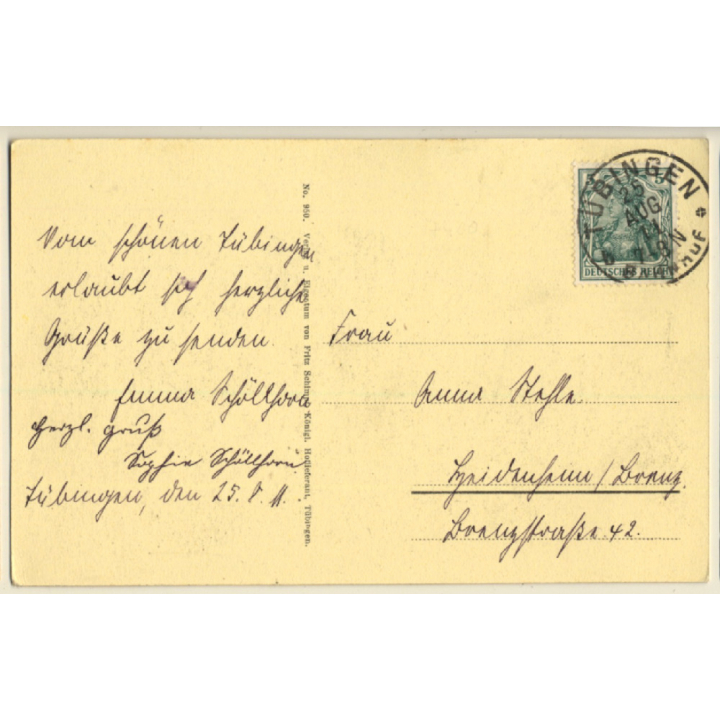 Vom schönen Tübingen
erlaubt sich herzliche
Grüße zu senden.
Emma Schöllhorn
Herzl. Gruß
Sophie Schöllhorn
Tübingen, den 25. 8. 11.
No. 950. Verlag u. Eigentum von Fritz Schimpf, Königl. Hoflieferant, Tübingen.
TÜBINGEN
25
AUG
11
7-8 N
BAHNHOF
DEUTSCHES REICH
Frau
Anna Stehle
Heidenheim / Brenz.
Brenzstraße 42.